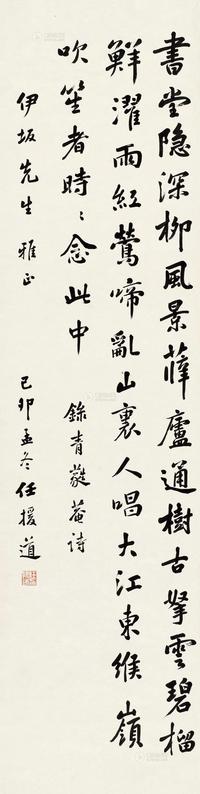 書堂隐深柳風景薜廬通樹古拏雲碧榴
鮮濯雨紅鶯啼亂山裏人唱大江東緱嶺
吹笙者時〻念此中 錄青蕤菴詩
伊坂先生雅正 己卯孟冬任援道